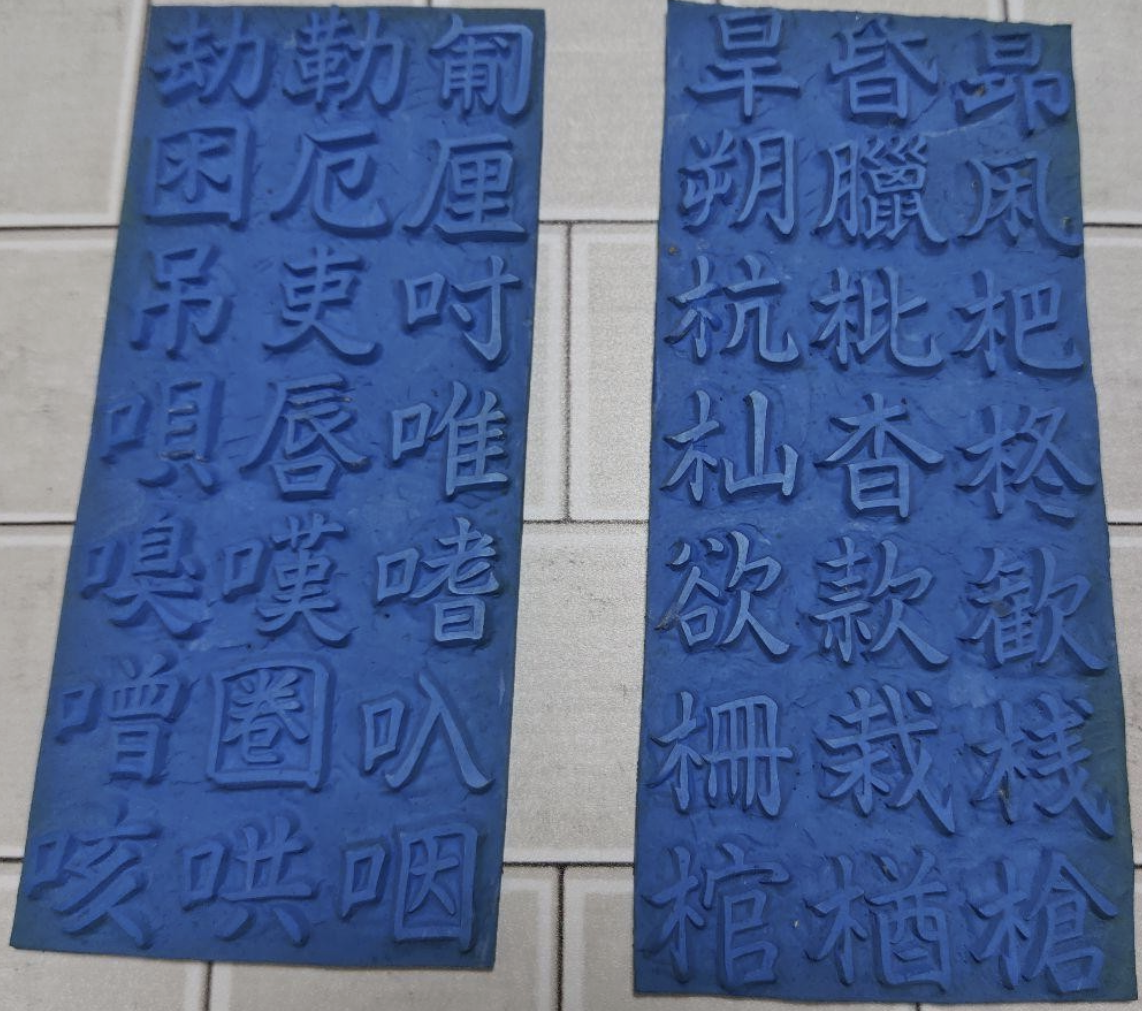 劫勒匍
困厄厘
吊吏吋
唄唇唯
嗅嘆嗜
噌圏叺
咳哄咽
旱昏昴
朔臘凩
杭枇杷
杣杳柊
欲款歓
柵栽桟
棺楢槍